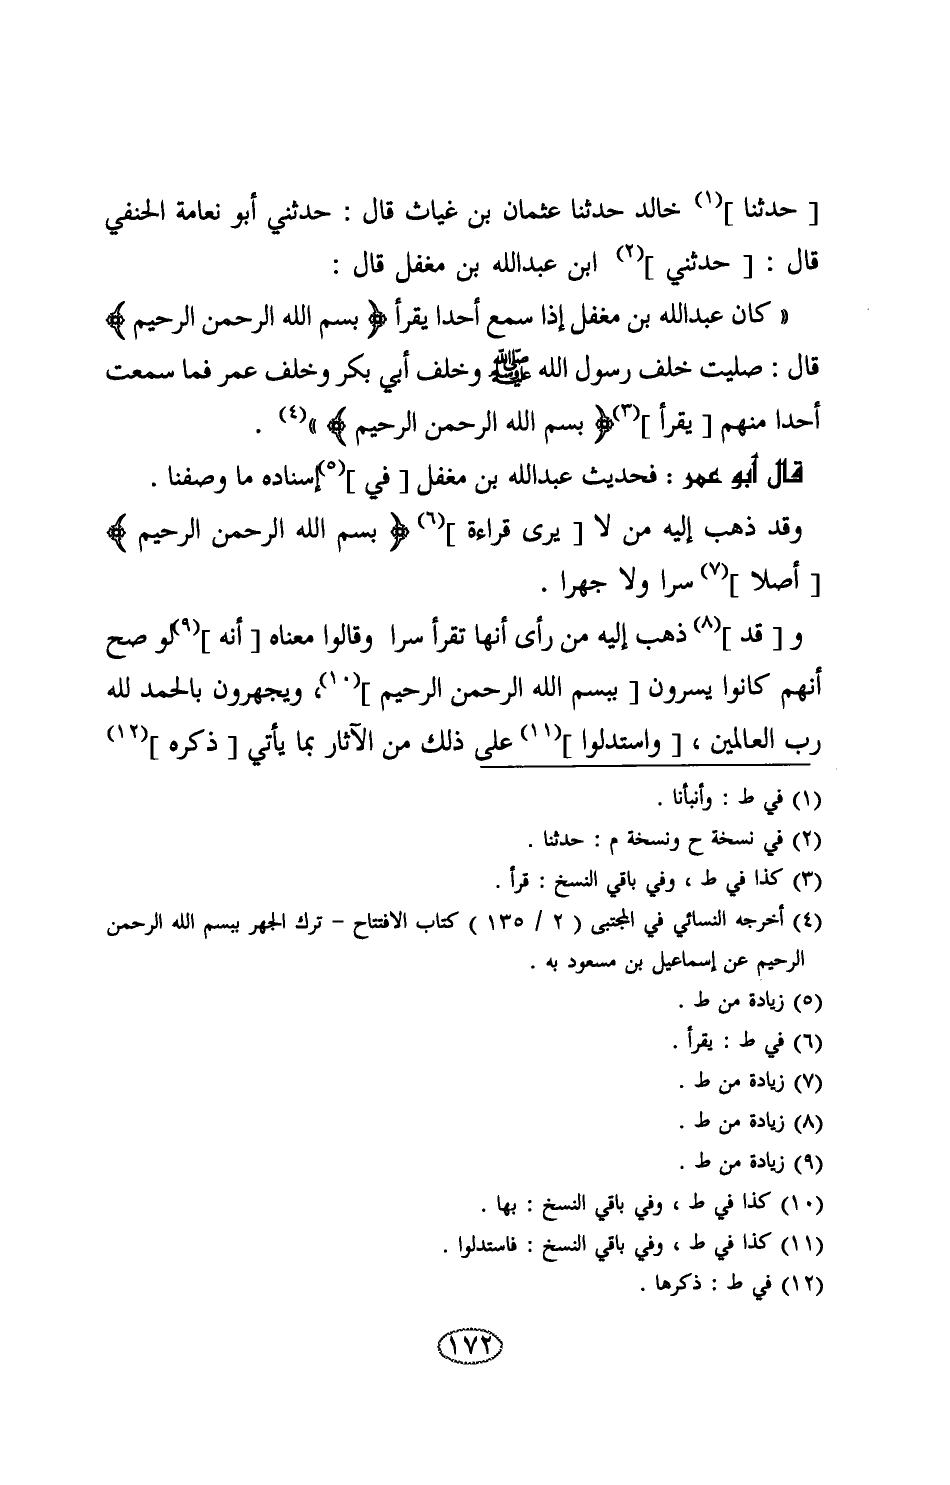 [ حدثنا ](١) خالد حدثنا عثمان بن غياث قال : حدثني أبو نعامة الحنفي
قال : [ حدثني ](٢) ابن عبدالله بن مغفل قال :
« كان عبدالله بن مغفل إذا سمع أحدا يقرأ ﴿ بسم الله الرحمن الرحيم ﴾
قال : صليت خلف رسول الله ﷺ وخلف أبي بكر وخلف عمر فما سمعت
أحدا منهم [ يقرأ ](٣)﴿ بسم الله الرحمن الرحيم ﴾ »(٤) .
قال أبو عمر : فحديث عبدالله بن مغفل [ في ](٥)إسناده ما وصفنا .
وقد ذهب إليه من لا [ يرى قراءة ](٦) ﴿ بسم الله الرحمن الرحيم ﴾
[ أصلا ](٧) سرا ولا جهرا .
و [ قد ](٨) ذهب إليه من رأى أنها تقرأ سرا وقالوا معناه [ أنه ](٩)لو صح
أنهم كانوا يسرون [ ببسم الله الرحمن الرحيم ](١٠)، ويجهرون بالحمد لله
رب العالمين ، [ واستدلوا ](١١) على ذلك من الآثار بما يأتي [ ذكره ](١٢)
(١) في ط : وأنبأنا .
(٢) في نسخة ح ونسخة م : حدثنا .
(٣) كذا في ط ، وفي باقي النسخ : قرأ .
(٤) أخرجه النسائي في المجتبى ( ٢ / ١٣٥ ) كتاب الافتتاح – ترك الجهر ببسم الله الرحمن
الرحيم عن إسماعيل بن مسعود به .
(٥) زيادة من ط .
(٦) في ط : يقرأ .
(٧) زيادة من ط .
(٨) زيادة من ط .
(٩) زيادة من ط .
(١٠) كذا في ط ، وفي باقي النسخ : بها .
(١١) كذا في ط ، وفي باقي النسخ : فاستدلوا .
(١٢) في ط : ذكرها .
١٧٢